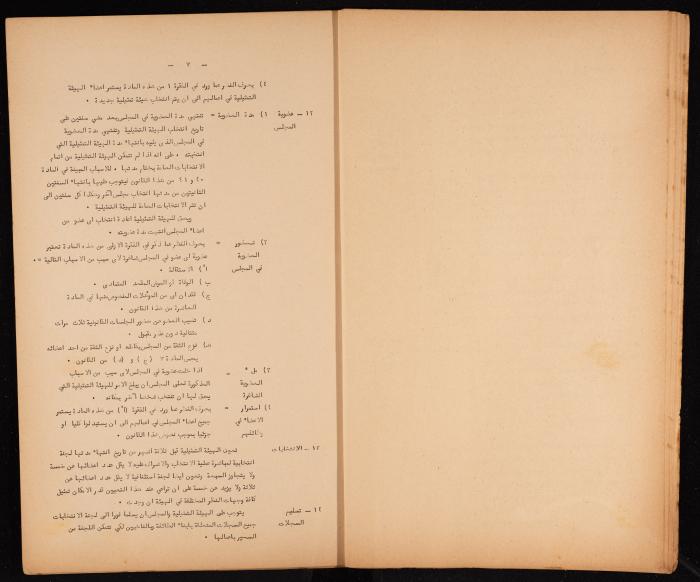 — ٧ —
٤) بصرف النظر عما ورد في الفقرة ١ من هذه المادة يستمر اعضاء الهيئة
التمثيلية في اعمالهم الى ان يتم انتخاب هيئة تمثيلية جديدة ٠
١٢ — عضوية المجلس
١) مدة العضوية = تنتهي مدة العضوية في المجلس بعد مضي سنتين على
تاريخ انتخاب الهيئة التمثيلية وتنتهي مدة العضوية
في المجلس الذي يليه بانتهاء مدة الهيئة التمثيلية التي
انتخبته ٠ على انه اذا لم تتمكن الهيئة التمثيلية من اتمام
الانتخابات العامة بختام مدتها ٠ للاسباب المبينة في المادة
٤٠ و ٤١ من هذا القانون فيتوجب عليها بانتهاء السنتين
القانونيتين من مدتها انتخاب مجلس آخر وهكذا كل سنتين الى
ان تتم الانتخابات العامة للهيئة التمثيلية ٠
ويحق للهيئة التمثيلية اعادة انتخاب اي عضو من
اعضاء المجلس انتهت مدة عضويته ٠
٢) شغور العضوية في المجلس = بصرف النظر عما ذكر في الفقرة الاولى من هذه المادة تعتبر
عضوية اي عضو في المجلس شاغرة لاي سبب من الاسباب التالية =٠
أ) الاستقالة ٠
ب) الوفاة او المرض المقعد المتمادى ٠
ج) فقدان اي من المؤهلات المنصوص عليها في المادة
العاشرة من هذا القانون ٠
د) تغيب العضو عن حضور الجلسات القانونية ثلاث مرات
متتالية دون عذر مقبول ٠
هـ) نزع الثقة من المجلس بكامله او نزع الثقة من احد اعضائه
بحسب المادة ٣ (ج) و (د) من القانون ٠
٣) ملء العضوية الشاغرة = اذا خلت عضوية في المجلس لاي سبب من الاسباب
المذكورة فعلى المجلس ان يبلغ الامر للهيئة التمثيلية التي
يحق لها ان تنتخب شخصا آخر بمكانه ٠
٤) استمرار الاعضاء في وظائفهم = بصرف النظر عما ورد في الفقرة (أ) من هذه المادة يستمر
جميع اعضاء المجلس في اعمالهم الى ان يستبدلوا كليا او
جزئيا بموجب نصوص هذا القانون ٠
١٣ — الانتخابات
تعين الهيئة التمثيلية قبل ثلاثة اشهر من تاريخ انتهاء مدتها لجنة
انتخابية لمباشرة عملية الانتخاب والاشراف عليه لا يقل عدد اعضائها عن خمسة
ولا يتجاوز السبعة وتعين ايضا لجنة استئنافية لا يقل عدد اعضائها عن
ثلاثة ولا يزيد عن خمسة على ان تراعي عند هذا التعيين قدر الامكان تمثيل
كافة وجهات النظر المختلفة في الهيئة ان وجدت ٠
١٤ — تسليم السجلات
يتوجب على الهيئة التمثيلية والمجلس ان يسلما فورا الى لجنة الانتخابات
جميع السجلات المتعلقة بابناء الطائفة وبالناخبين لكي تتمكن اللجنة من
السير باعمالها ٠